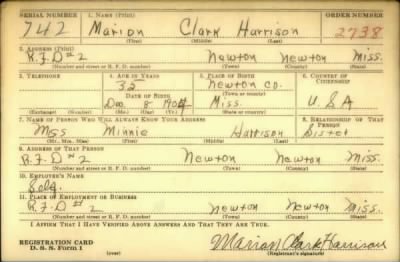 SERIAL NUMBER 1. NAME (Print) ORDER NUMBER
742 Marion Clark Harrison 2738
(First) (Middle) (Last)
2. ADDRESS (Print)
R.F.D #2 Newton Newton Miss.
(Number and street or R. F. D. number) (Town) (County) (State)
3. TELEPHONE 4. AGE IN YEARS 5. PLACE OF BIRTH 6. COUNTRY OF CITIZENSHIP
32 Newton Co.
DATE OF BIRTH (Town or county)
Dec 8 Miss. U.S.A
(Exchange) (Number) (Mo.) (Day) (Yr.) (State or country)
7. NAME OF PERSON WHO WILL ALWAYS KNOW YOUR ADDRESS 8. RELATIONSHIP OF THAT PERSON
Miss Minnie Harrison Sister
(Mr., Mrs., Miss) (First) (Middle) (Last)
9. ADDRESS OF THAT PERSON
R.F.D #2 Newton Newton Miss.
(Number and street or R. F. D. number) (Town) (County) (State)
10. EMPLOYER'S NAME
Self.
11. PLACE OF EMPLOYMENT OR BUSINESS
R.F.D #2 Newton Newton Miss.
(Number and street or R. F. D. number) (Town) (County) (State)
I AFFIRM THAT I HAVE VERIFIED ABOVE ANSWERS AND THAT THEY ARE TRUE.
REGISTRATION CARD
D. S. S. Form 1 (over) Marion Clark Harrison
(Registrant's signature)